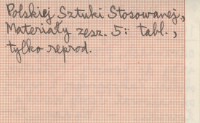 Polskiej Sztuki Stosowanej,
Materiały zesz. 5: tabl.,
tylko reprod.